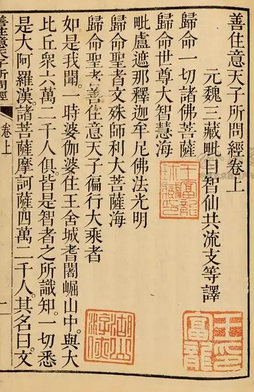 善住意天子所問經卷上
元魏三藏毗目智仙共流支等譯
歸命一切諸佛菩薩
歸命世尊大智慧海
毗盧遮那釋迦牟尼佛法光明
歸命聖者文殊師利大菩薩海
歸命聖者善住意天子偏行大乘者
如是我聞一時婆伽婆住王舍城耆闍崛山中與大
比丘衆六萬二千人俱皆是智者之所識知一切悉
是大阿羅漢諸菩薩摩訶薩四萬二千人其名曰文
善住意天子所問經
卷上
一